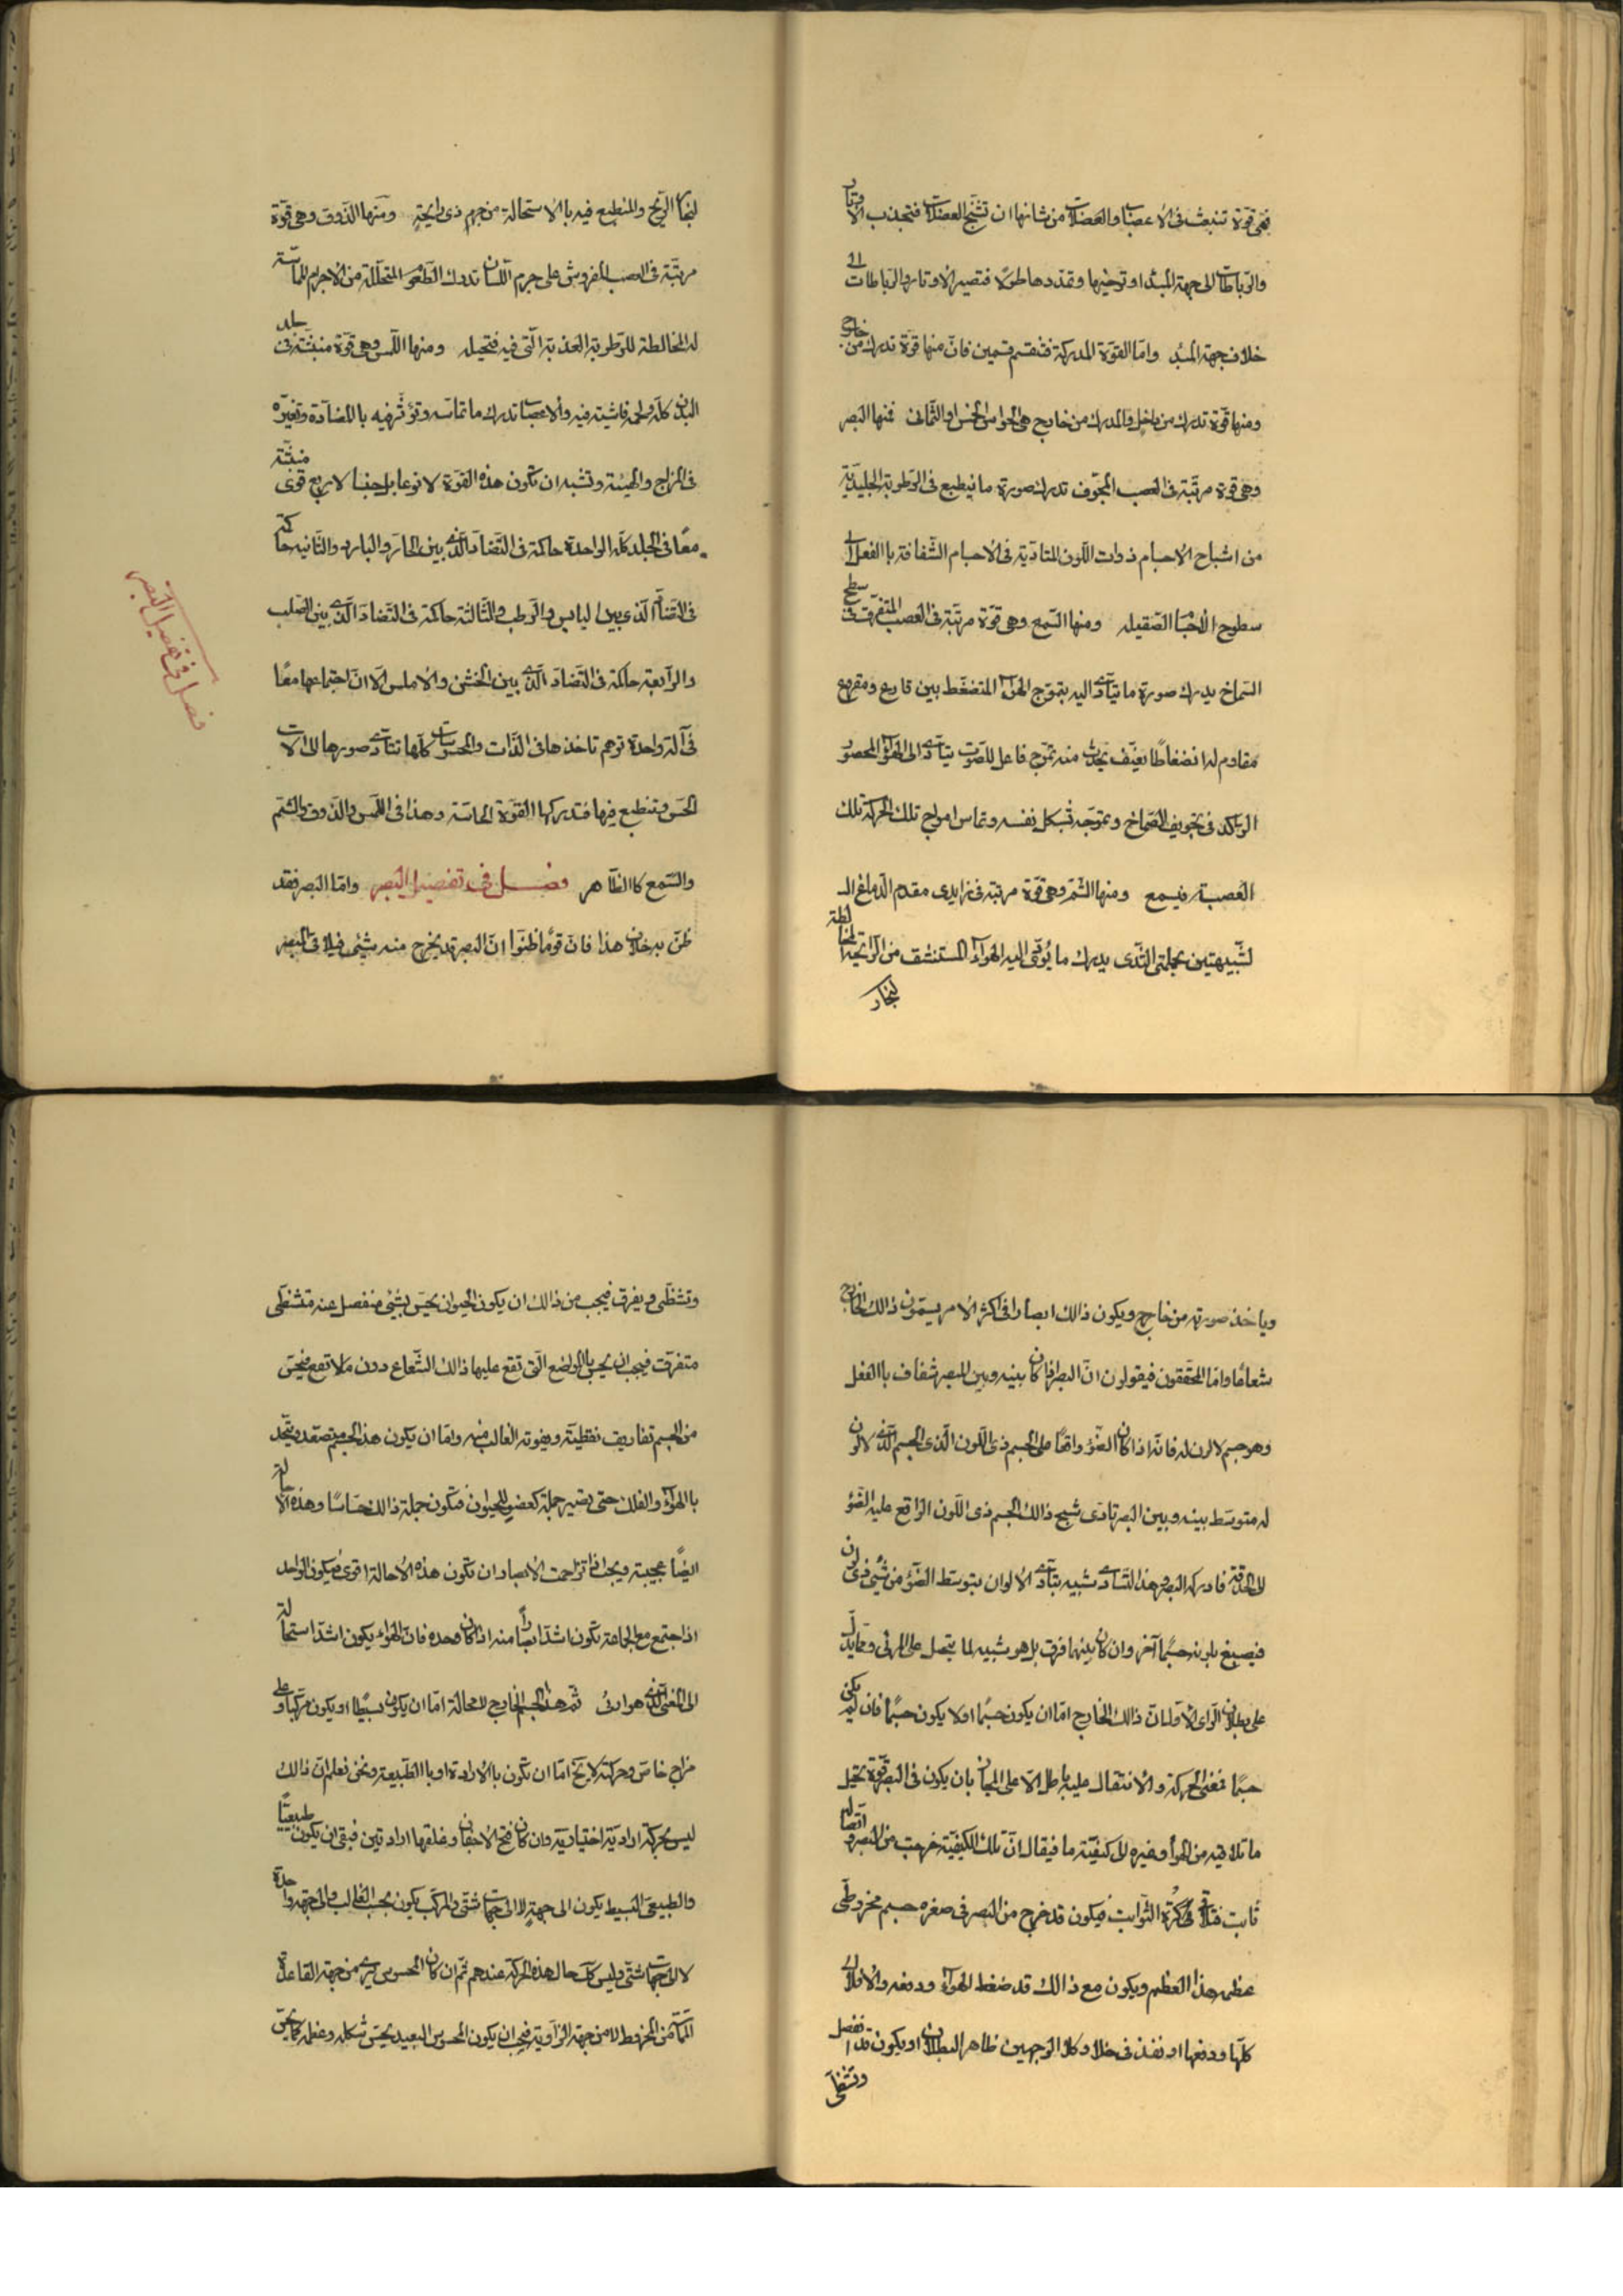 فهى قوة تنبعث فى الاعصاب والعضلات من شانها ان تشنج العضلات فتجذب الاوتار
والرباطات الى جهة المبدا او ترخيها وتمددها طولًا فتصير الاوتار والرباطات الى
خلاف جهة المبدا وامّا القوّة المدركة فتنقسم قسمين فانّ منها قوّة تدرك من خارج
ومنها قوة تدرك من داخل والمدرك من خارج هى الحواس الخمس او الثمانى فمنها البصر
وهى قوة مرتّبة فى العصب المجوّف تدرك صورة ما ينطبع فى الرّطوبة الجليديّة
من اشباح الاجسام ذوات اللّون المتادّية فى الاجسام الشّفافة باالفعل الى
سطوح الاجسام الصّقيلة ومنها السّمع وهى قوّة مرتّبة فى العصب المتفرّق فى سطح
السّماخ يدرك صورة ما يتادّى اليه بتموّج الهوآء المنضغط بين قارع ومقروع
مقاوم له انضغاطًا بعنف يحدث منه تموّج فاعل للصّوت يتادّى الى الهوآء المحصور
الراكد فى تجويف الصّماخ وتموّجه بشكل نفسه وتماس امواج تلك الحركة تلك
العصبة فيسمع ومنها الشّمّ وهى قوّة مرتبة فى زايدى مقدم الدّماغ الـ
لشّبيهتين بحلمتى الثّدى يدرك ما يُؤدّى اليه الهوآء المستنشق من الرّائحة المخالطة
لبخار
لبخار الرّيح والمنطبع فيه باالاستحالة من جرم ذى رايحةٍ ومنها الذّوق وهى قوّة
مرتّبة فى العصب المفروش على جرم اللّسان تدرك الطّعوم المتحلّلة من الاجرام المماسّة
له المخالطة للرّطوبة العذبة الّتى فيه فتحيله ومنها اللّمس وهى قوّة منبثّة فى جلد
البدن كلّه ولحمه فاشية فيه والاعصاب تدرك ما تماسّه وتؤثّر فيه باالمضآدّة وتغيّره
فى المزاج والهيئة وتشبه ان تكون هذه القوّة لا نوعا بل جنسا لاربع قوى منبثّة
معًا فى الجلد كلّه الواحدة حاكمة فى التّضادّ الّذى بين الحارّ والبارد والثّانيه حاكمة
فى التّضادّ الّذى بين اليابس والرّطب والثّالثة حاكمة فى التّضادّ الّذى بين الصّلب
والرآبعة حاكمة فى التّضادّ الّذى بين الخشن والاملس الّا انّ اجتماعها معًا
فى آلة واحدة توهم تاخذها فى الذّات والمحسوسات كلّها تتادّى صورها الى آلات
الحسّ وتنطبع فيها فتدركها القوّة الحاسّة وهذا فى اللّمس والذّوق والشّمّ
والسّمع كاالظّاهر فصل فى تفصيل البصر وامّا البصر فقد
ظنّ به خلاف هذا فانّ قومًا ظنّوا انّ البصر قد يخرج منه شيئى فيلاقى المبصر
فصل فى تفصيل البصر
وياخذ صورته من خارج ويكون ذالك ابصارا فى اكثر الامر يسمّون ذالك الخارج
شعاعًا وامّا المحقّقون فيقولون انّ البصر اذا كان بينه وبين المبصر شفاف باالفعل
وهو جسم لا لون له فانّه اذا كان الضّوء واقعًا على الجسم ذى اللّون الّذى الجسم الّذى لا لون
له متوسّط بينه وبين البصر تادّى شبح ذالك الجسم ذى اللّون الواقع عليه الضّوء
الى الحدقة فادركه البصر وهذا التّادّى شبيه بتادّى الالوان بتوسّط الضّوء من شيئ ذى لون
فيصبغ بلونه جسمًا آخر وان كان بينهما فرق بل هو شبيه لما يتحصل على المرئى ومما يدلّ
على بطلان الرّاى الاوّل انّ ذالك الخارج امّا ان يكون جسمًا او لا يكون جسمًا فان لم يكن
جسمًا فمعنى الحركة والانتقال عليه باطل الّا على المجاز بان يكون فى البصر قوّة تحيل
ما تلاقيه من الهوآء وغيره الى كيفيّة ما فيقال انّ تلك الكيفيّة خرجت من البصر و
ثابت فتلاقى كرة الثّوابت فيكون قد خرج من البصر فى صغره جسم مخروطىّ
عظمه هذا العظم ويكون مع ذالك قد ضغط الهوآء ودفعه والافلاك
كلّها ودفعها او نفذ فى خلاء وكلا الوجهين ظاهر البطلان او يكون قد انفصل
وتشظّى
وتشظّى وتفرق فيجب من ذالك ان يكون الحيوان يحسّ بشيئ منفصل عنه متشظّى
متفرّق فيجب ان يحسّ بالمواضع الّتى تقع عليها ذالك الشّعاع دون ما لا تقع فيحسّ
من الجسم تفاريق نقطيّة ويفوته الغالب منه وامّا ان يكون هذا الجسم متصعّد ويتّحد
باالهوآء والفلك حتى تصير جملة كعضو للحيوان فتكون جملة ذالك حسّاسًا وهذه الاحالة
ايضًا عجيبة ويجب اذا تزاحمت الابصار ان تكون هذه الاحالة اقوى فيكون الواحد
اذا اجتمع مع الجماعة تكون اشدّ ابصارًا منه اذا كان وحده فانّ الهوآء يكون اشدّ استحالة
الى المعنى الّذى هو ادئ ثمّ هذا الجسم الخارج لا محالة امّا ان يكون بسيطًا او يكون مركّبا وعلى
مزاج خاصّ وحركته لا يخ امّا ان تكون باالارادة او باالطّبيعة ونحن نعلم انّ ذالك
ليس بحركة اراديّة اختياريّة وان كان فتح الاجفان وغلقها اراديتين فبقى ان يكون طبيعيًّا
والطّبيعىّ البسيط يكون الى جهةٍ لا الى جهات شتّى والمركّب يكون بحسب الغالب والى جهة واحدة
لا الى جهات شتّى وليس كك حال هذه الحركة عندهم ثمّ ان كان المحسوس يُرى من جهة القاعدة
المماسّ من المخروط لا من جهة الزّاوية فيجب ان يكون المحسوس البعيد يحسّ شكله وعظمه كما يحسّ